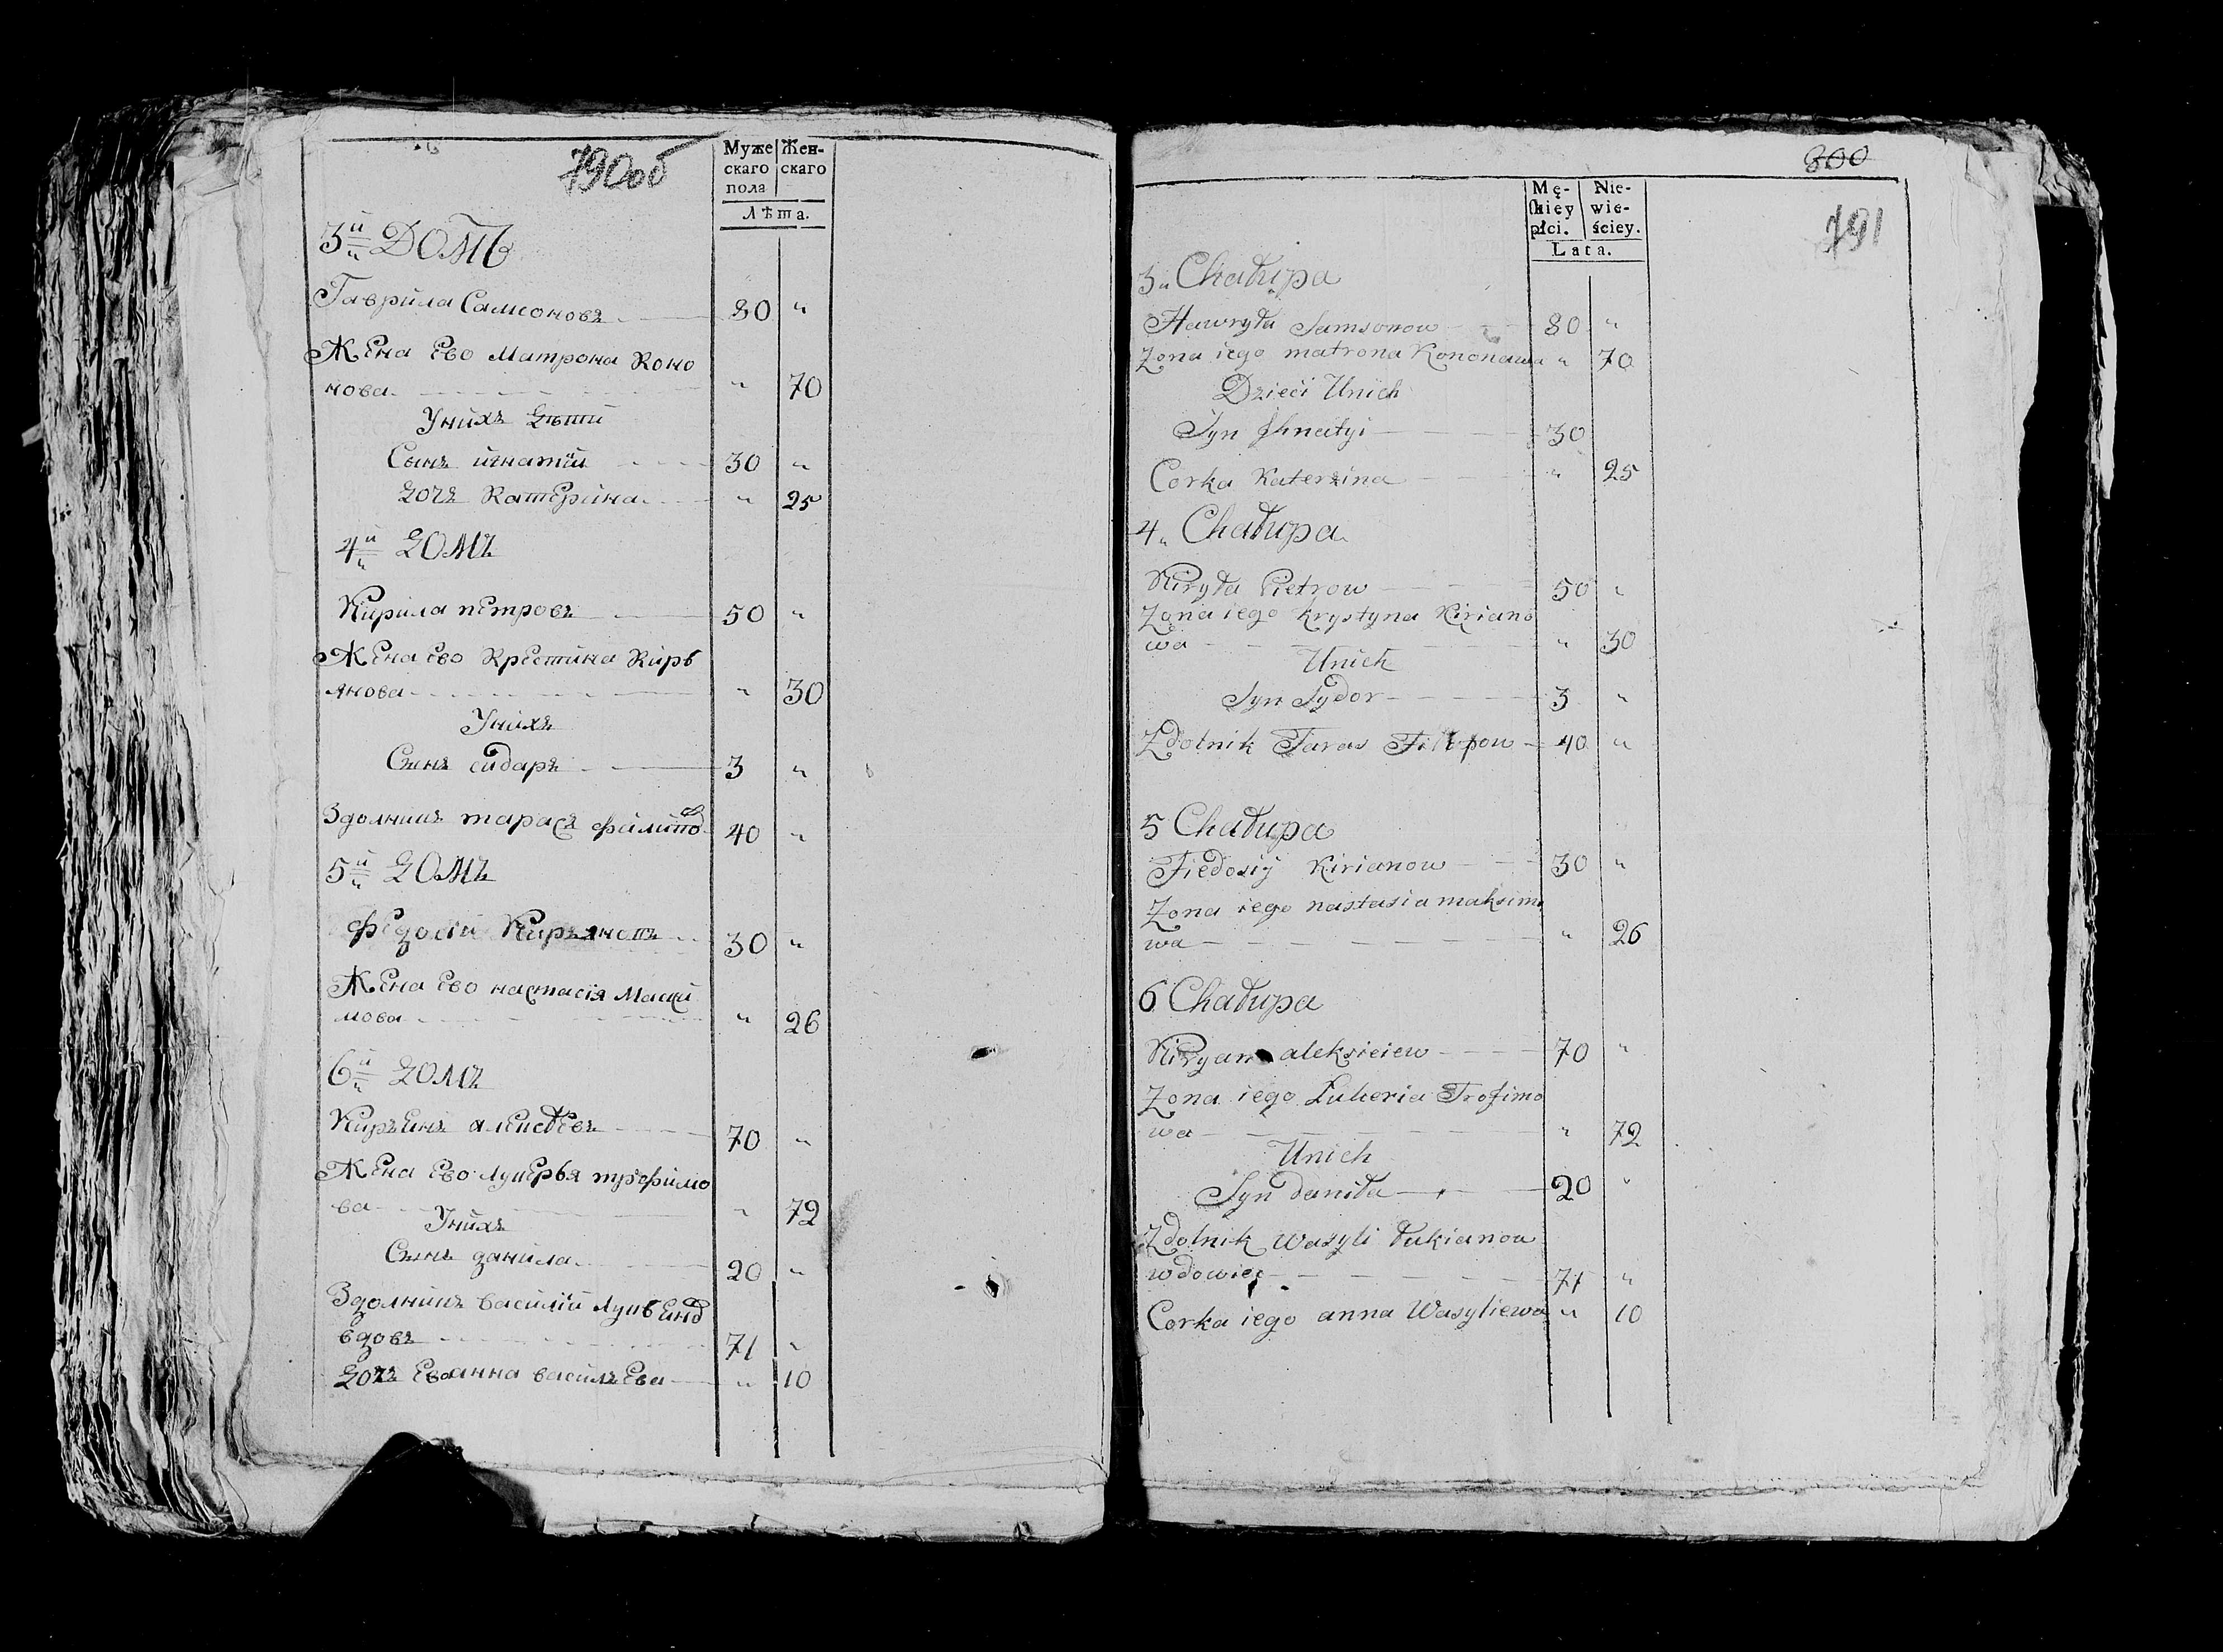 790об
Муже
скаго
пола
Жен-
скаго
Лѣта.
3й ДОМЪ
Гаврила Самсоновъ 80 "
Жена Ево Матрона Коно
нова " 70
Унихъ дѣти
Сынъ игнатїй 30 "
дочъ Катерина " 25
4й домъ
Кирила петровъ 50 "
Жена ево Крестина Кирь
янова " 30
Унихъ
Сынъ сидаръ 3 "
Здолникъ тарасъ филипов 40 "
5й домъ
федосiй 30 "
Жена Ево настасiя Макси
мова " 26
6й домъ
Киръянъ алексѣевъ 70 "
Жена Ево лукерья трофимо
ва " 72
Унихъ
Сынъ данила 20 "
Здолникъ василiй
вдовъ 71 "
дочъ Ево анна василъева " 10
800
791
Mę-
skiey
płci.
Nie-
wie-
ściey.
Lata.
3 Chałupa
Hawryła Samsonow 80 "
Zona iego matrona Kononawa " 70
Dzieci Unich
Syn Ihnatyi 30
Corka Katerzina " 25
4 Chałupa
Kiryła Pietrow 50 "
Zona iego Krystyna Kiriano
wa " 30
Unich
Syn Sydor 3 "
Zdolnik Taras Filipow 40 "
5 Chałupa
Fiedosiy Kirianow 30 "
Zona iego nastasia maksimo
wa " 26
6 Chałupa
Kiryan aleksieiew 70 "
Zona iego Łukeria Trofimo
wa " 72
Unich
Syn daniła 20 "
Zdolnik Wasyli łukianow
wdowiec 71 "
Corka iego anna Wasyliewa " 10